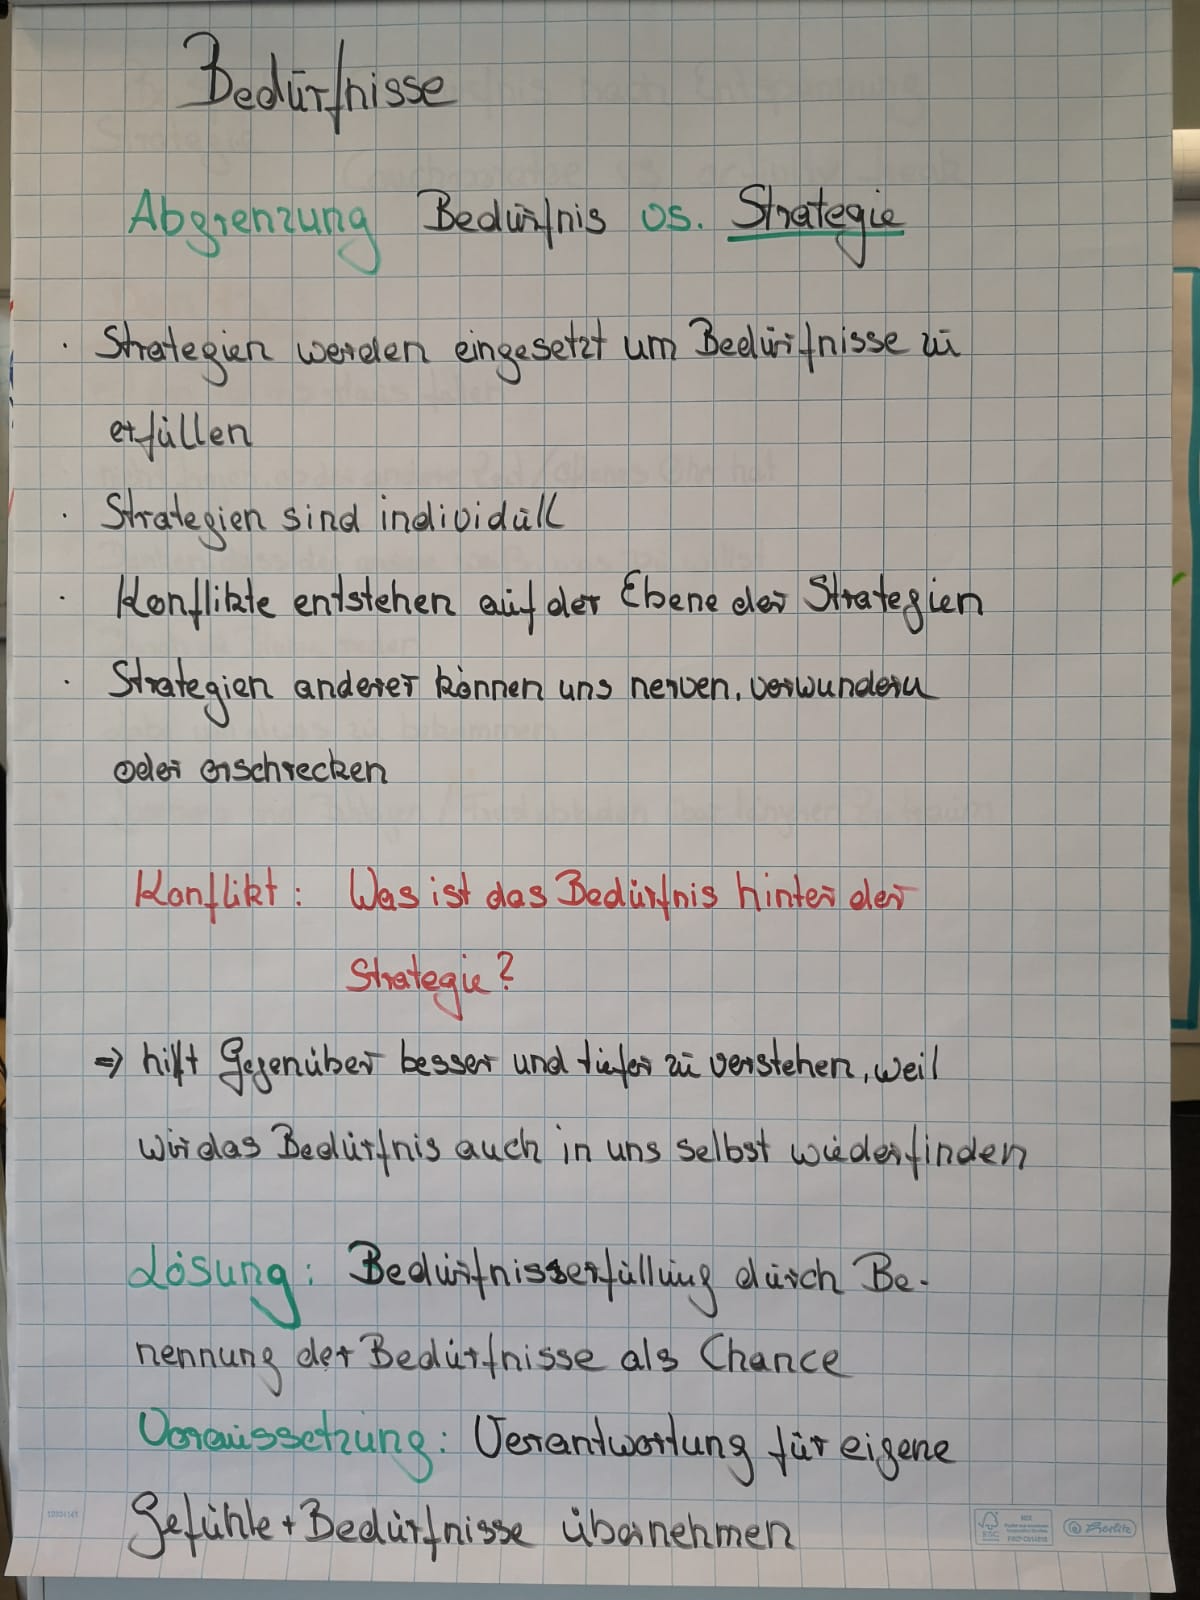 Bedürfnisse
Abgrenzung Bedürfnis vs. Strategie
· Strategien werden eingesetzt um Bedürfnisse zu
erfüllen
· Strategien sind individüll
· Konflikte entstehen auf der Ebene der Strategien
· Strategien anderer können uns nerven, verwundern
oder erschrecken
Konflikt: Was ist das Bedürfnis hinter der
Strategie?
⇒ hilft Gegenüber besser und tiefer zu verstehen, weil
wir das Bedürfnis auch in uns selbst wiederfinden
Lösung: Bedürfnisserfüllung durch Be-
nennung der Bedürfnisse als Chance
Voraussetzung: Verantwortung für eigene
Gefühle + Bedürfnisse übernehmen
FSC
MIX
Berlitz